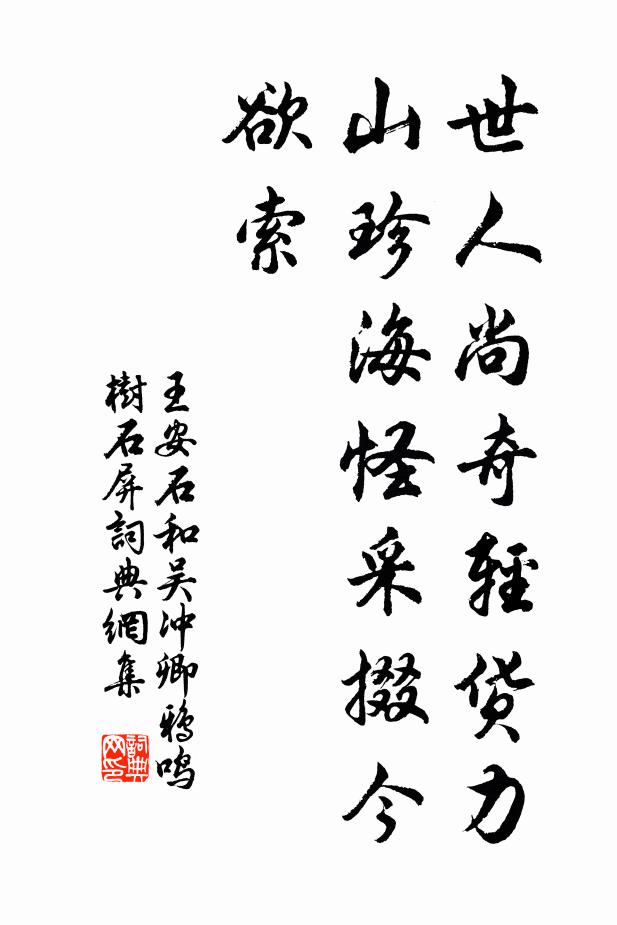 世人尚奇輕货力
山珍海怪采掇今
欲索
王安石和吴冲卿鴉鸣
樹石屏詞典網集
詞典网印